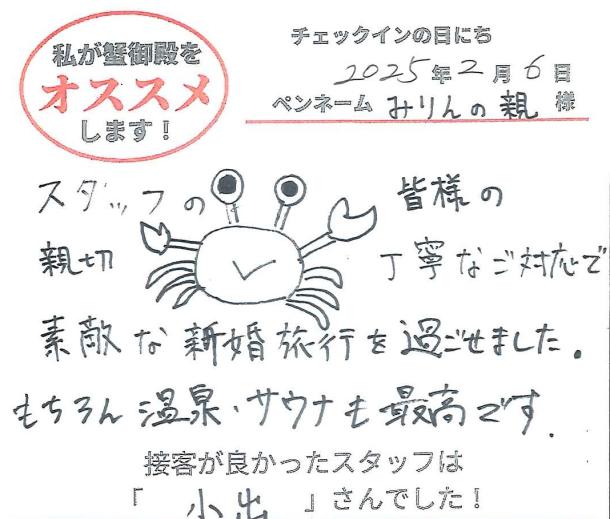 私が蟹御殿を
オススメ
します！
チェックインの日にち
2025年2月6日
ペンネーム みりんの親 様
スタッフの 皆様の
親切 丁寧なご対応で
素敵な新婚旅行を過ごせました。
もちろん温泉・サウナも最高です.
接客が良かったスタッフは
「 小出 」さんでした！